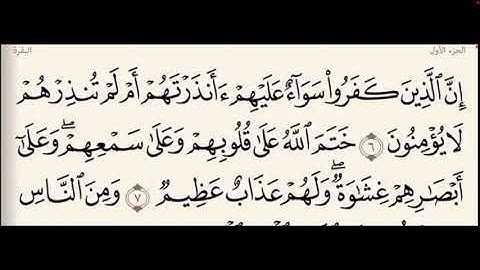 الجزء الأول البقرة
إِنَّ ٱلَّذِينَ كَفَرُوا۟ سَوَآءٌ عَلَيْهِمْ ءَأَنذَرْتَهُمْ أَمْ لَمْ تُنذِرْهُمْ
لَا يُؤْمِنُونَ ٦ خَتَمَ ٱللَّهُ عَلَىٰ قُلُوبِهِمْ وَعَلَىٰ سَمْعِهِمْ ۖ وَعَلَىٰٓ
أَبْصَـٰرِهِمْ غِشَـٰوَةٌ ۖ وَلَهُمْ عَذَابٌ عَظِيمٌ ٧ وَمِنَ ٱلنَّاسِ